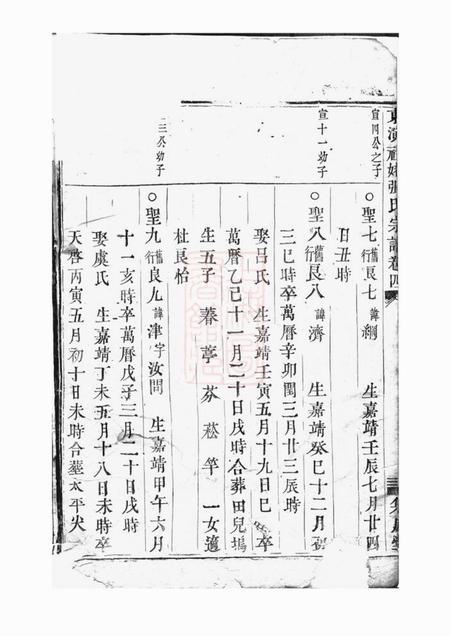 東演 張氏宗譜卷四
宣四公之子
○聖七行舊良七諱綱 生嘉靖壬辰七月廿四
日丑時
宣十一幼子
○聖八行舊良八諱濟 生嘉靖癸巳十二月
三巳時卒萬曆辛卯閏三月廿三辰時
娶呂氏 生嘉靖壬寅五月十九日巳 卒
萬曆乙巳十一月二十日戌時合葬田兒塢
生五子 𦶜葶芬菘竿 一女適
杜良怡
三公幼子
○聖九行舊良九諱津字汝問 生嘉靖甲午六月
十一亥時卒萬曆戊子三月二十日戌時
娶虞氏 生嘉靖丁未五月十八日未時卒
天啓丙寅五月初十日未時合塟太平尖